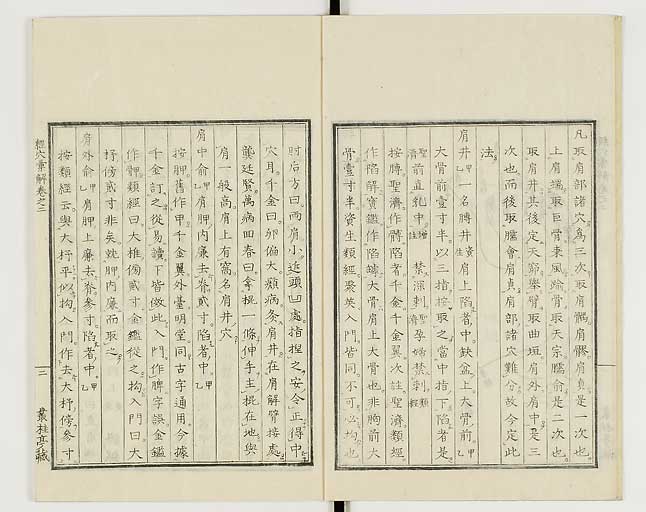 凡取肩部諸穴爲三次取肩髃肩髎肩貞是一次也
上肩端取巨骨秉風踰骨取天宗臑俞是二次也
取肩井其後定天窌擧臂取曲垣肩外肩中是三
次也而後取臑會肩貞肩部諸穴難分故今定此
法
肩井 甲乙 一名膊井 資生 肩上陷者中缺盆上大骨前 甲乙
大骨前壹寸半以三指按取之當中指下陷者是
聖濟 前直乳中 禁深刺 聖濟 孕婦禁刺 類經
按膊聖濟作髆陷者千金千金翼次註聖濟類經
作陷解寶鑑作陷罅大骨肩上大骨也非胸前大
骨壹寸半資生類經聚英入門皆同不可必拘也
肘後方曰兩肩小近頭凹處指捏之安令正得中
穴耳千金曰卵偏大癩病灸肩井在肩解臂接處
龔廷賢萬病回春曰拿棍一條伸手主棍在地與
肩一般高肩上有窩名肩井穴
肩中俞 甲乙 肩胛内廉去脊貳寸陷者中 甲乙
按胛舊作甲千金翼外臺明堂同古字通用分據
千金訂之從易讀下皆倣此入門作脾字誤金鑑
作髀類經曰大椎傍貳寸金鑑從之拘入門曰大
杼傍貳寸非矣就胛内廉而取之
肩外俞 甲乙 肩胛上廉去脊參寸陷者中 甲乙
按類經云與大杼平似拘入門作去大杼傍參寸
經穴彙解卷之三
三
叢桂亭藏